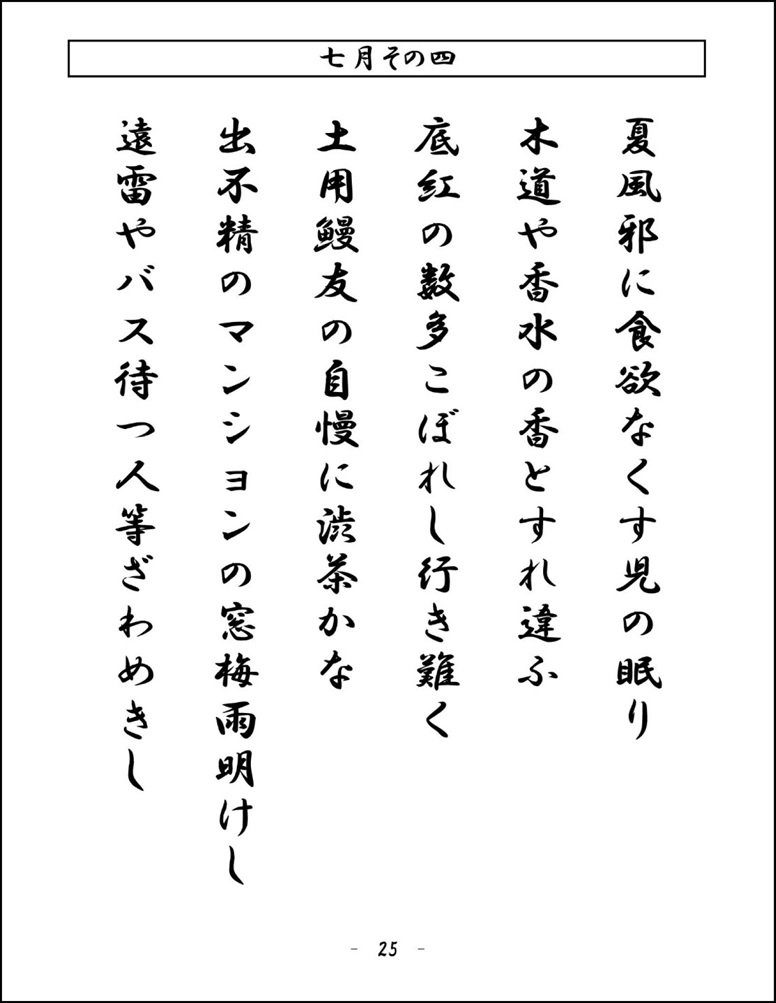 七月その四
夏風邪に食欲なくす児の眠り
木道や香水の香とすれ違ふ
底紅の数多こぼれし行き難く
土用鰻友の自慢に渋茶かな
出不精のマンションの窓梅雨明けし
遠雷やバス待つ人等ざわめきし
- 25 -